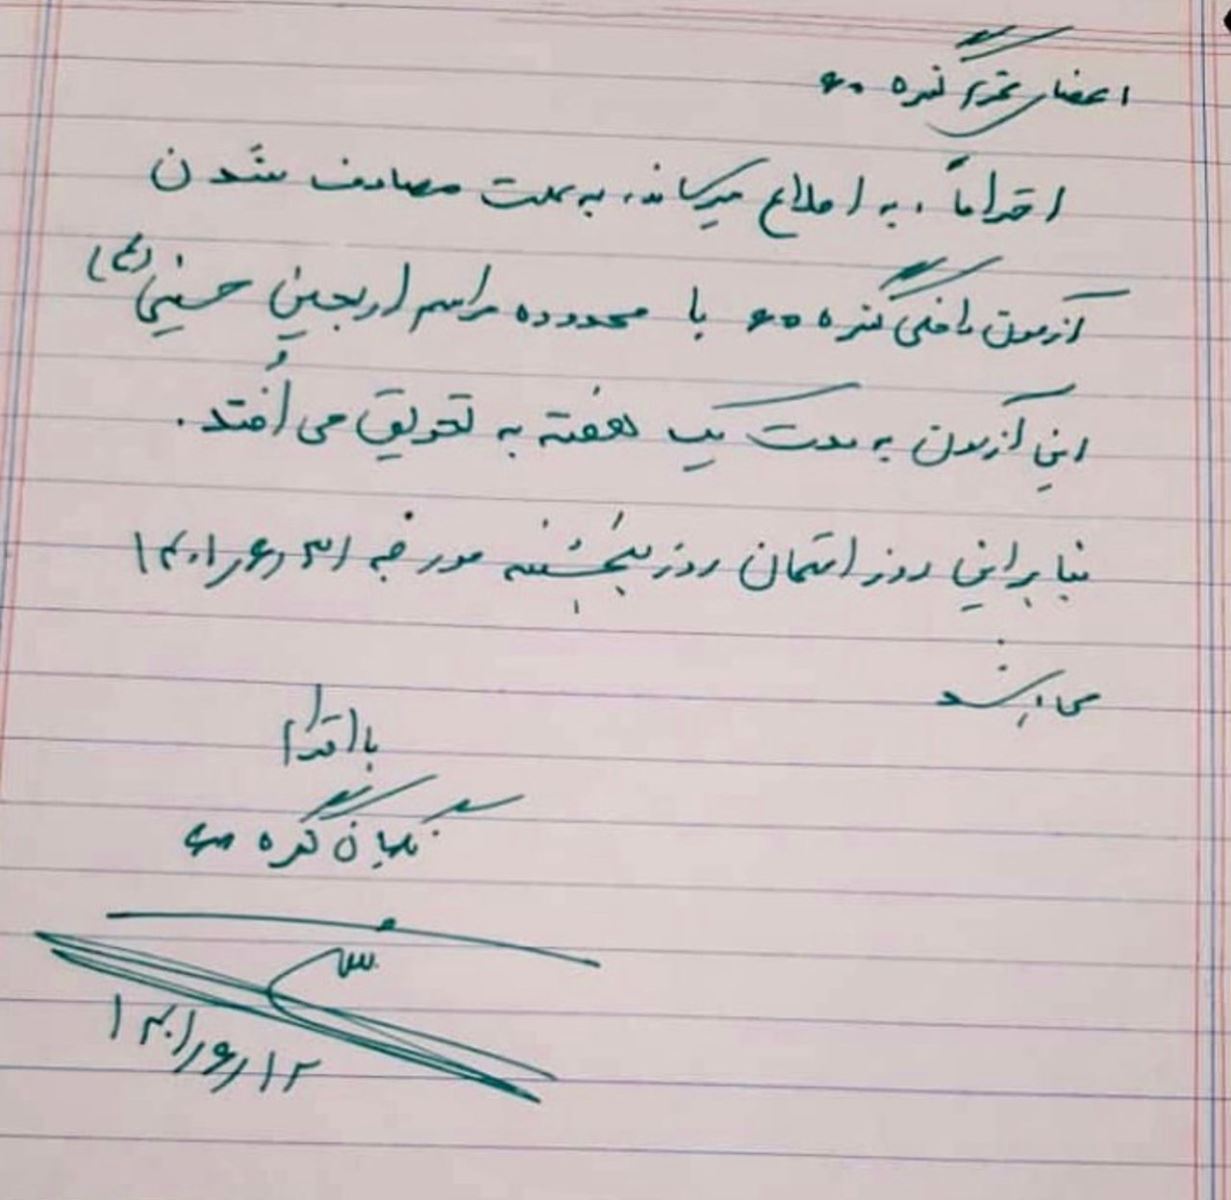 اعضای محترم کنگره ۶۰
احتراماً، به اطلاع میرساند، به علت مصادف شدن
آزمون داخلی کنگره ۶۰ با محدوده مراسم اربعین حسینی (ع)
این آزمون به مدت یک هفته به تعویق می اُفتد.
بنابراین روز امتحان روز پنجشنبه مورخه ۱۴۰۱/۶/۳۱
می باشد
با احترام
نگهبان کنگره ۶۰
۱۴۰۱/۶/۱۲